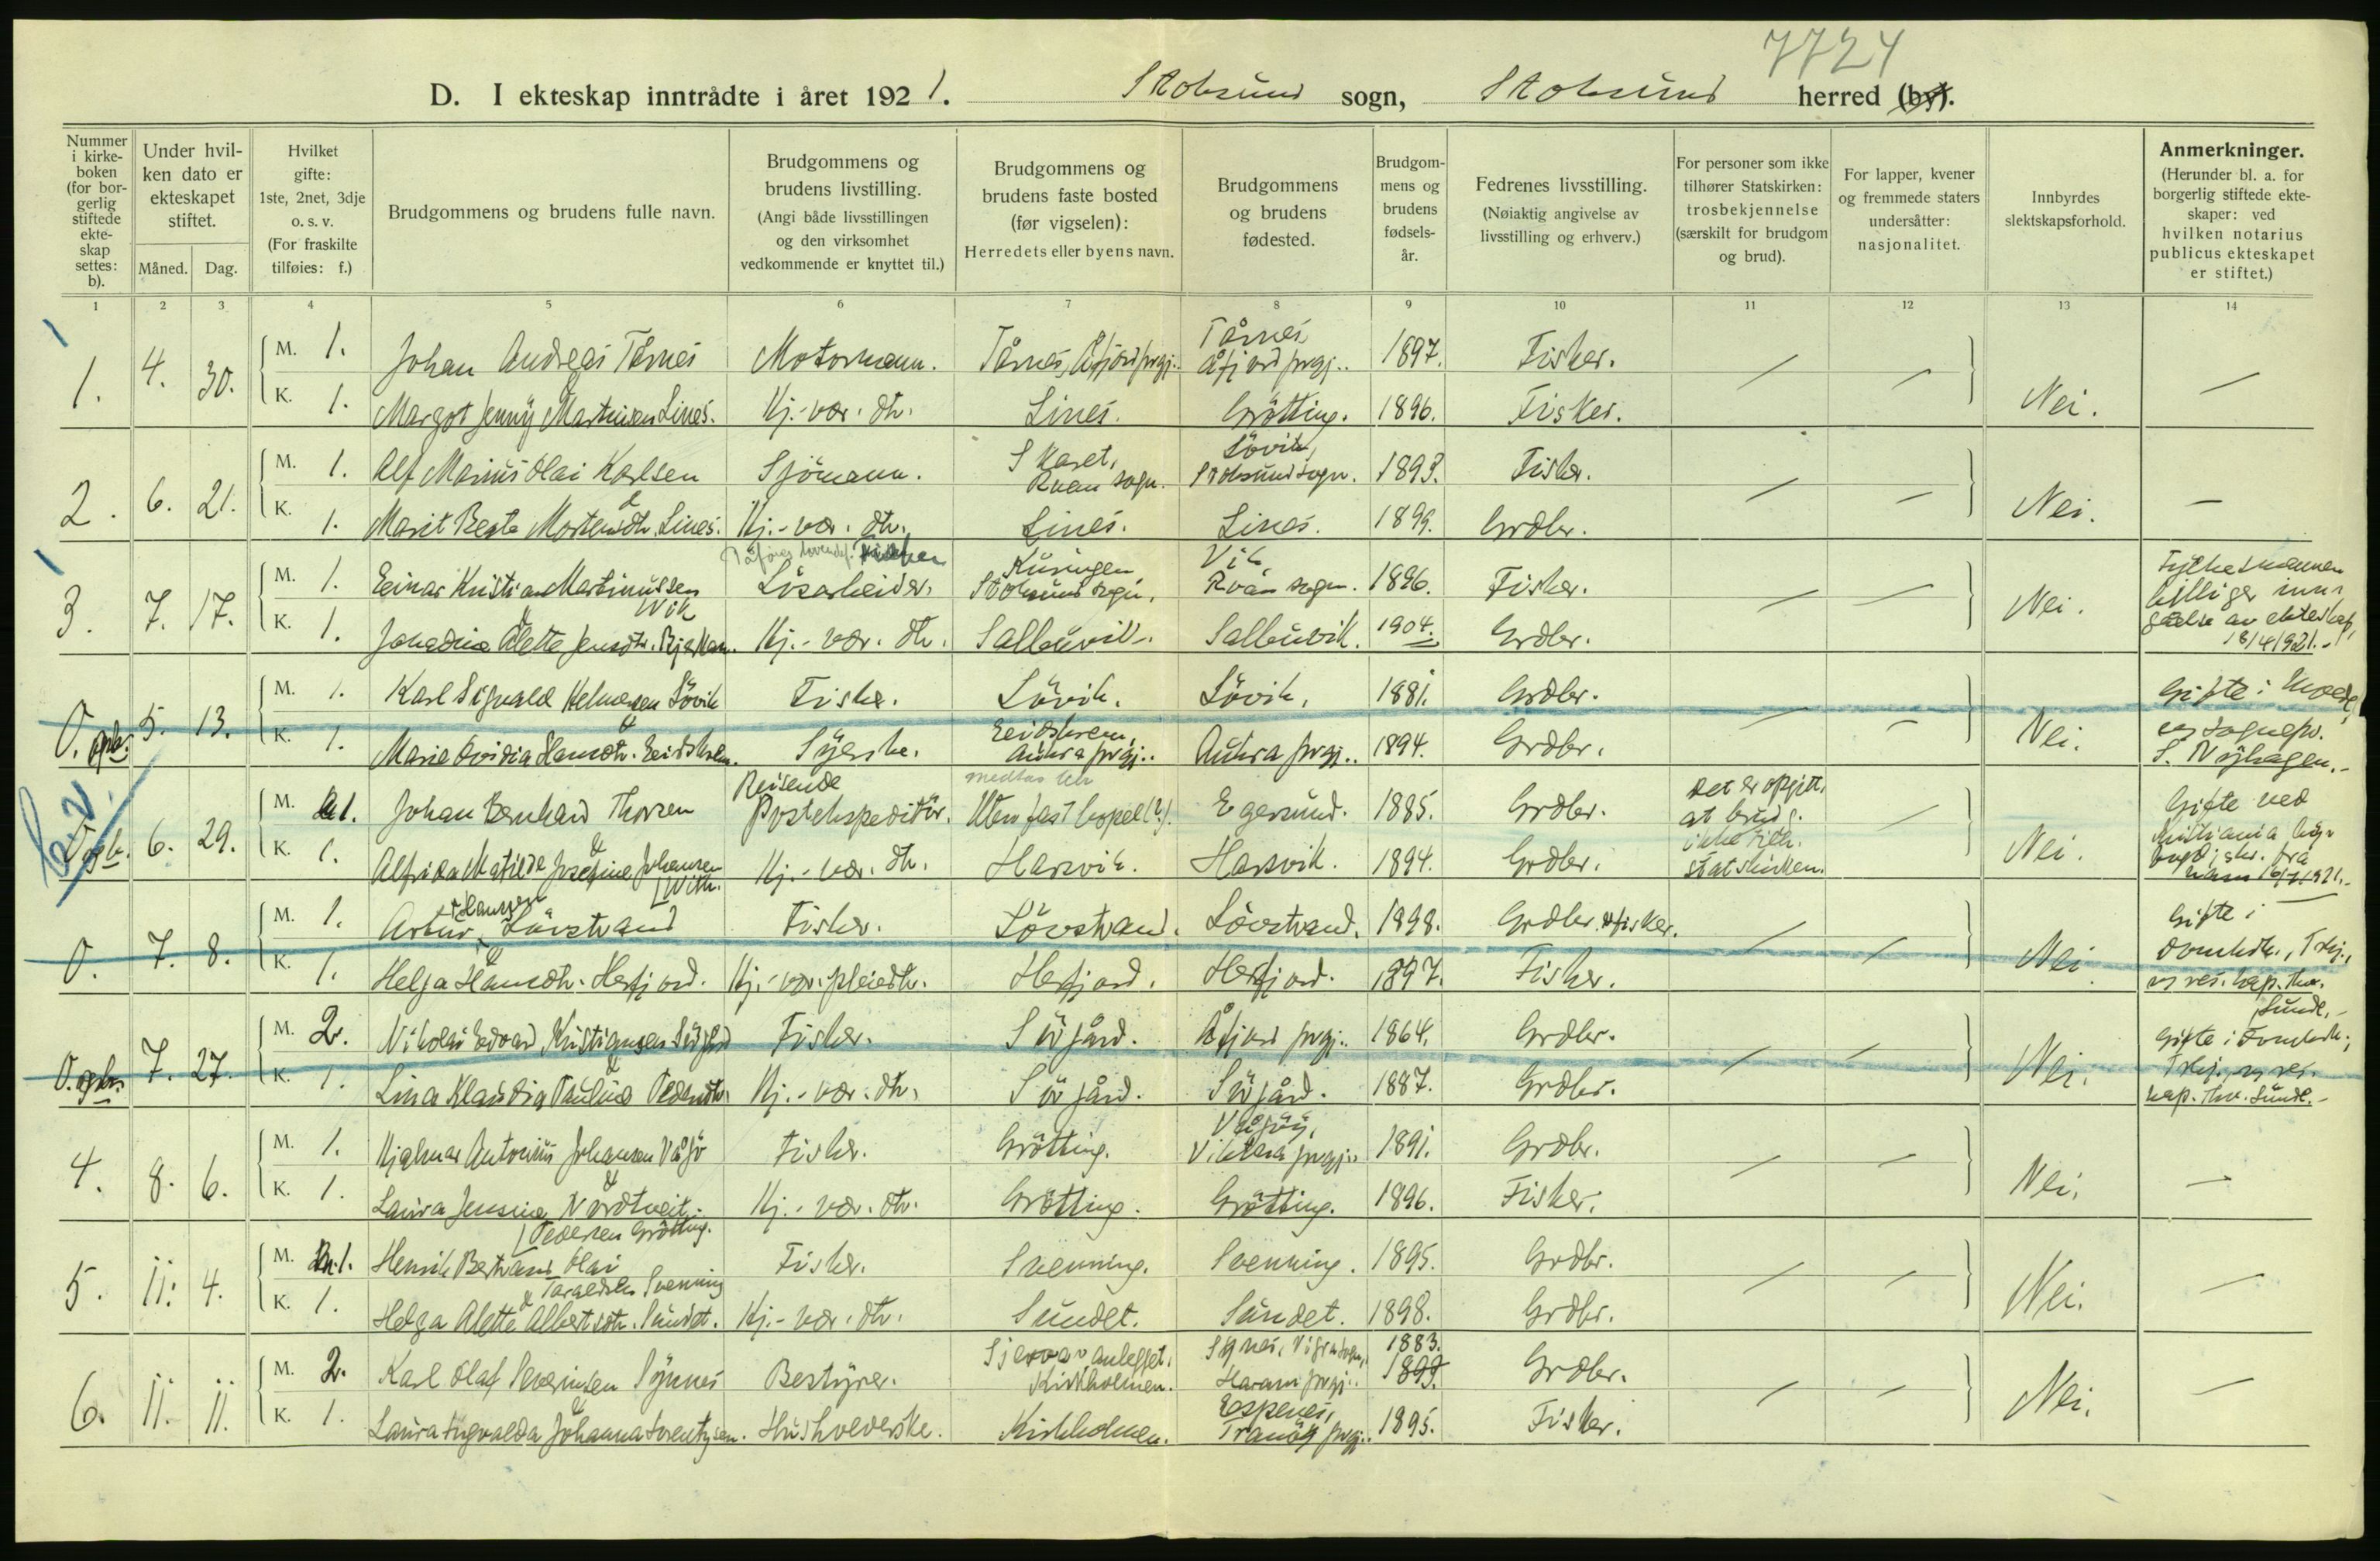 7724
D. I ekteskap inntrådte i året 1921. Stoksund sogn, Stoksund herred (by).
Nummer i kirkeboken (for borgerlig stiftede ekteskap settes: b).
Under hvilken dato er ekteskapet stiftet.
Måned. Dag.
Hvilket gifte: 1ste, 2net, 3dje o. s. v. (For fraskilte tilføies: f.)
Brudgommens og brudens fulle navn.
Brudgommens og brudens livstilling. (Angi både livsstillingen og den virksomhet vedkommende er knyttet til.)
Brudgommens og brudens faste bosted (før vigselen): Herredets eller byens navn.
Brudgommens og brudens fødested.
Brudgommens og brudens fødselsår.
Fedrenes livsstilling. (Nøiaktig angivelse av livsstilling og erhverv.)
For personer som ikke tilhører Statskirken: trosbekjennelse (særskilt for brudgom og brud).
For lapper, kvener og fremmede staters undersåtter: nasjonalitet.
Innbyrdes slektskapsforhold.
Anmerkninger. (Herunder bl. a. for borgerlig stiftede ekteskaper: ved hvilken notarius publicus ekteskapet er stiftet.)
1 2 3 4 5 6 7 8 9 10 11 12 13 14
1. 4. 30. M. 1. Johan Andreas Tårnes Motormann. Tårnes, Åfjord prgj. Tårnes, Åfjord prgj. 1897. Fisker. Nei.
& K. 1. Margot Jenny Martinsen Lines. Kj.-vær. dtr. Lines. Grötting. 1896. Fisker.
2. 6. 21. M. 1. Alf Marius Olai Karlsen Sjömann. Skaret, Roan sogn. Lövik, Stoksund sogn. 1893. Fisker. Nei.
& K. 1. Marit Beate Mortensdtr. Lines. Kj.-vær. dtr. Lines. Lines. 1899. Grdbr.
3. 7. 17. M. 1. Einar Kristian Martinussen Wik Lösarbeider. Kuringen Stoksund sogn. Vik, Roan sogn. 1896. Fisker. Nei. Fylkesmannen billiger inngåelse av ekteskap, 18/4 1921.-
& K. 1. Alette Jensdtr. Kj.-vær. dtr. Sallbuvik. Sallbuvik. 1904. Grdbr.
O. 5. 13. M. 1. Karl Sigvald Helmersen Lövik Fisker. Lövik. Lövik. 1881. Grdbr. Nei. Gifte i Molde, v/ sognepr. S. Nyhagen.-
& K. 1. Marie Ovidia Hansdtr. Eidskrem. Syerske. Eidskrem, Aukra prgj. Aukra prgj. 1894. Grdbr.
6. 29. M. 1. Johan Bernhard Thorsen Reisende Postekspeditör. Uten fast bopel (?). Egersund. 1885. Grdbr. Det er opgitt, at brudg. ikke tilh. statskirken. Nei. Gifte ved Kristiania
& K. 1. Alfrida Matilde Josefine Johansen Kj.-vær. dtr. Harsvik. Harsvik. 1894. Grdbr.
O. 7. 8. M. 1. Artur Hansen Lövstrand Fisker. Lövstrand. Lövstrand. 1898. Grdbr. & fisker. Nei. Gifte i Domkirk., Trhj., v/ res. kap. Thv. Sund.-
& K. 1. Helga Hansdtr. Herfjord. Kj.-vær. pleiedtr. Herfjord. Herfjord. 1897. Fisker.
O. 7. 27. M. 2. Nikolai Edvard Kristiansen Sörgård Fisker. Sörgård. Åfjord prgj. 1864. Grdbr. Nei. Gifte i Domkirk., Trhj. v/ res. kap. Thv. Sund.-
& K. 1. Lina Klaudia Paulina Pedersdtr. Kj.-vær. dtr. Sörgård. Sörgård. 1887. Grdbr.
4. 8. 6. M. 1. Hjalmar Antonius Johansen Vågö Fisker. Grötting. Vågöy, Vikna prgj. 1891. Grdbr. Nei.
& K. 1. Laura Jensine Nordtveit Pedersen Grötting. Kj.-vær. dtr. Grötting. Grötting. 1896. Fisker.
5. 11. 4. M. 1. Henrik Bertrand Olai Taraldsen Svenning Fisker. Svenning. Svenning. 1895. Grdbr. Nei.
& K. 1. Helga Alette Albertsdtr. Sundet. Kj.-vær. dtr. Sundet. Sundet. 1898. Grdbr.
6. 11. 11. M. 2. Karl Olaf Severinsen Synnes Bestyrer. Kirkholmen. Synes, Vigra sogn, Haram prgj. 1883. 1893. Grdbr. Nei.
& K. 1. Laura Ingvalda Johanna Lorentzen. Husholderske. Kirkholmen. Espenes, Tranöy prgj. 1895. Fisker.